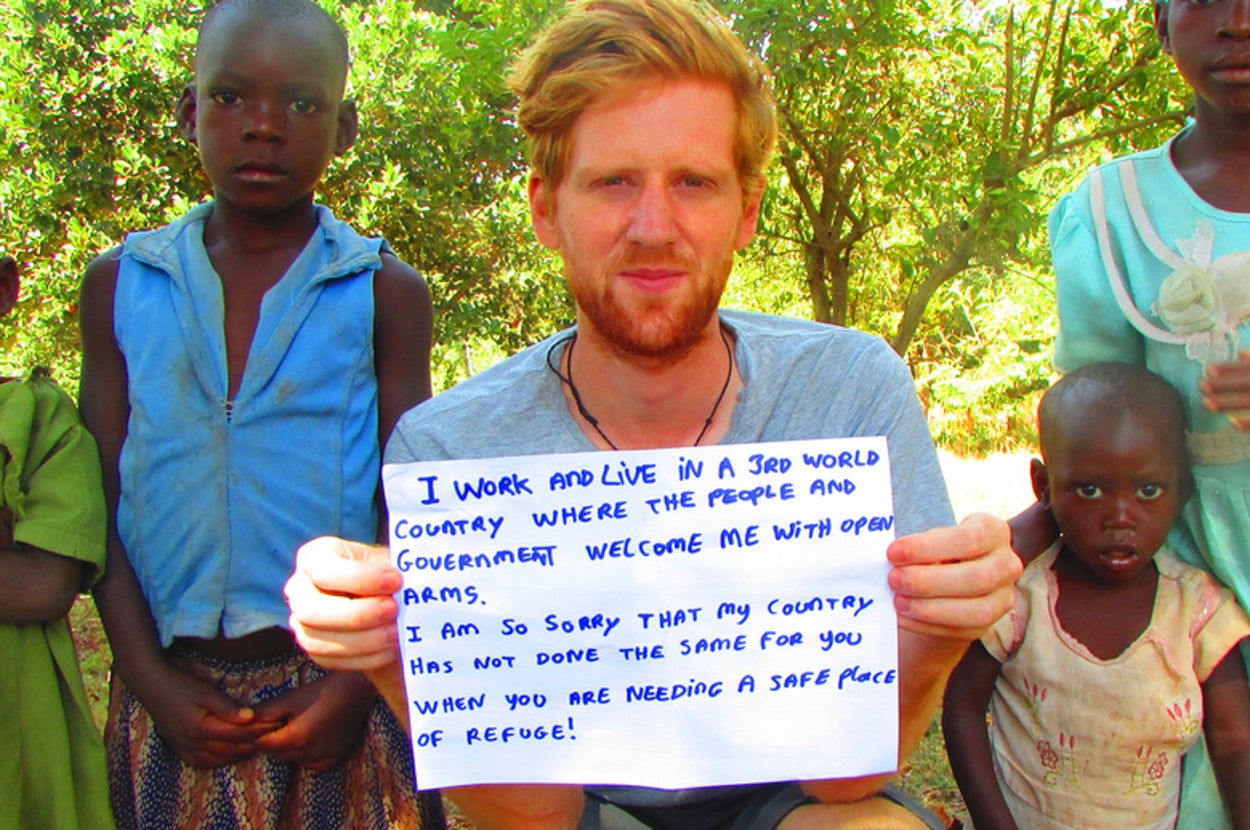 I WORK AND LiVE iN A 3RD WORLD
COUNTRY WHERE THE PEOPLE AND
GOVERNMENT WELCOME ME WITH OPEN
ARMS.
I AM SO SORRY THAT My COUNTRY
HAS NOT DONE THE SAME FOR YOU
WHEN YOU ARE NEEDiNG A SAFE PlacE
OF REFUGE!